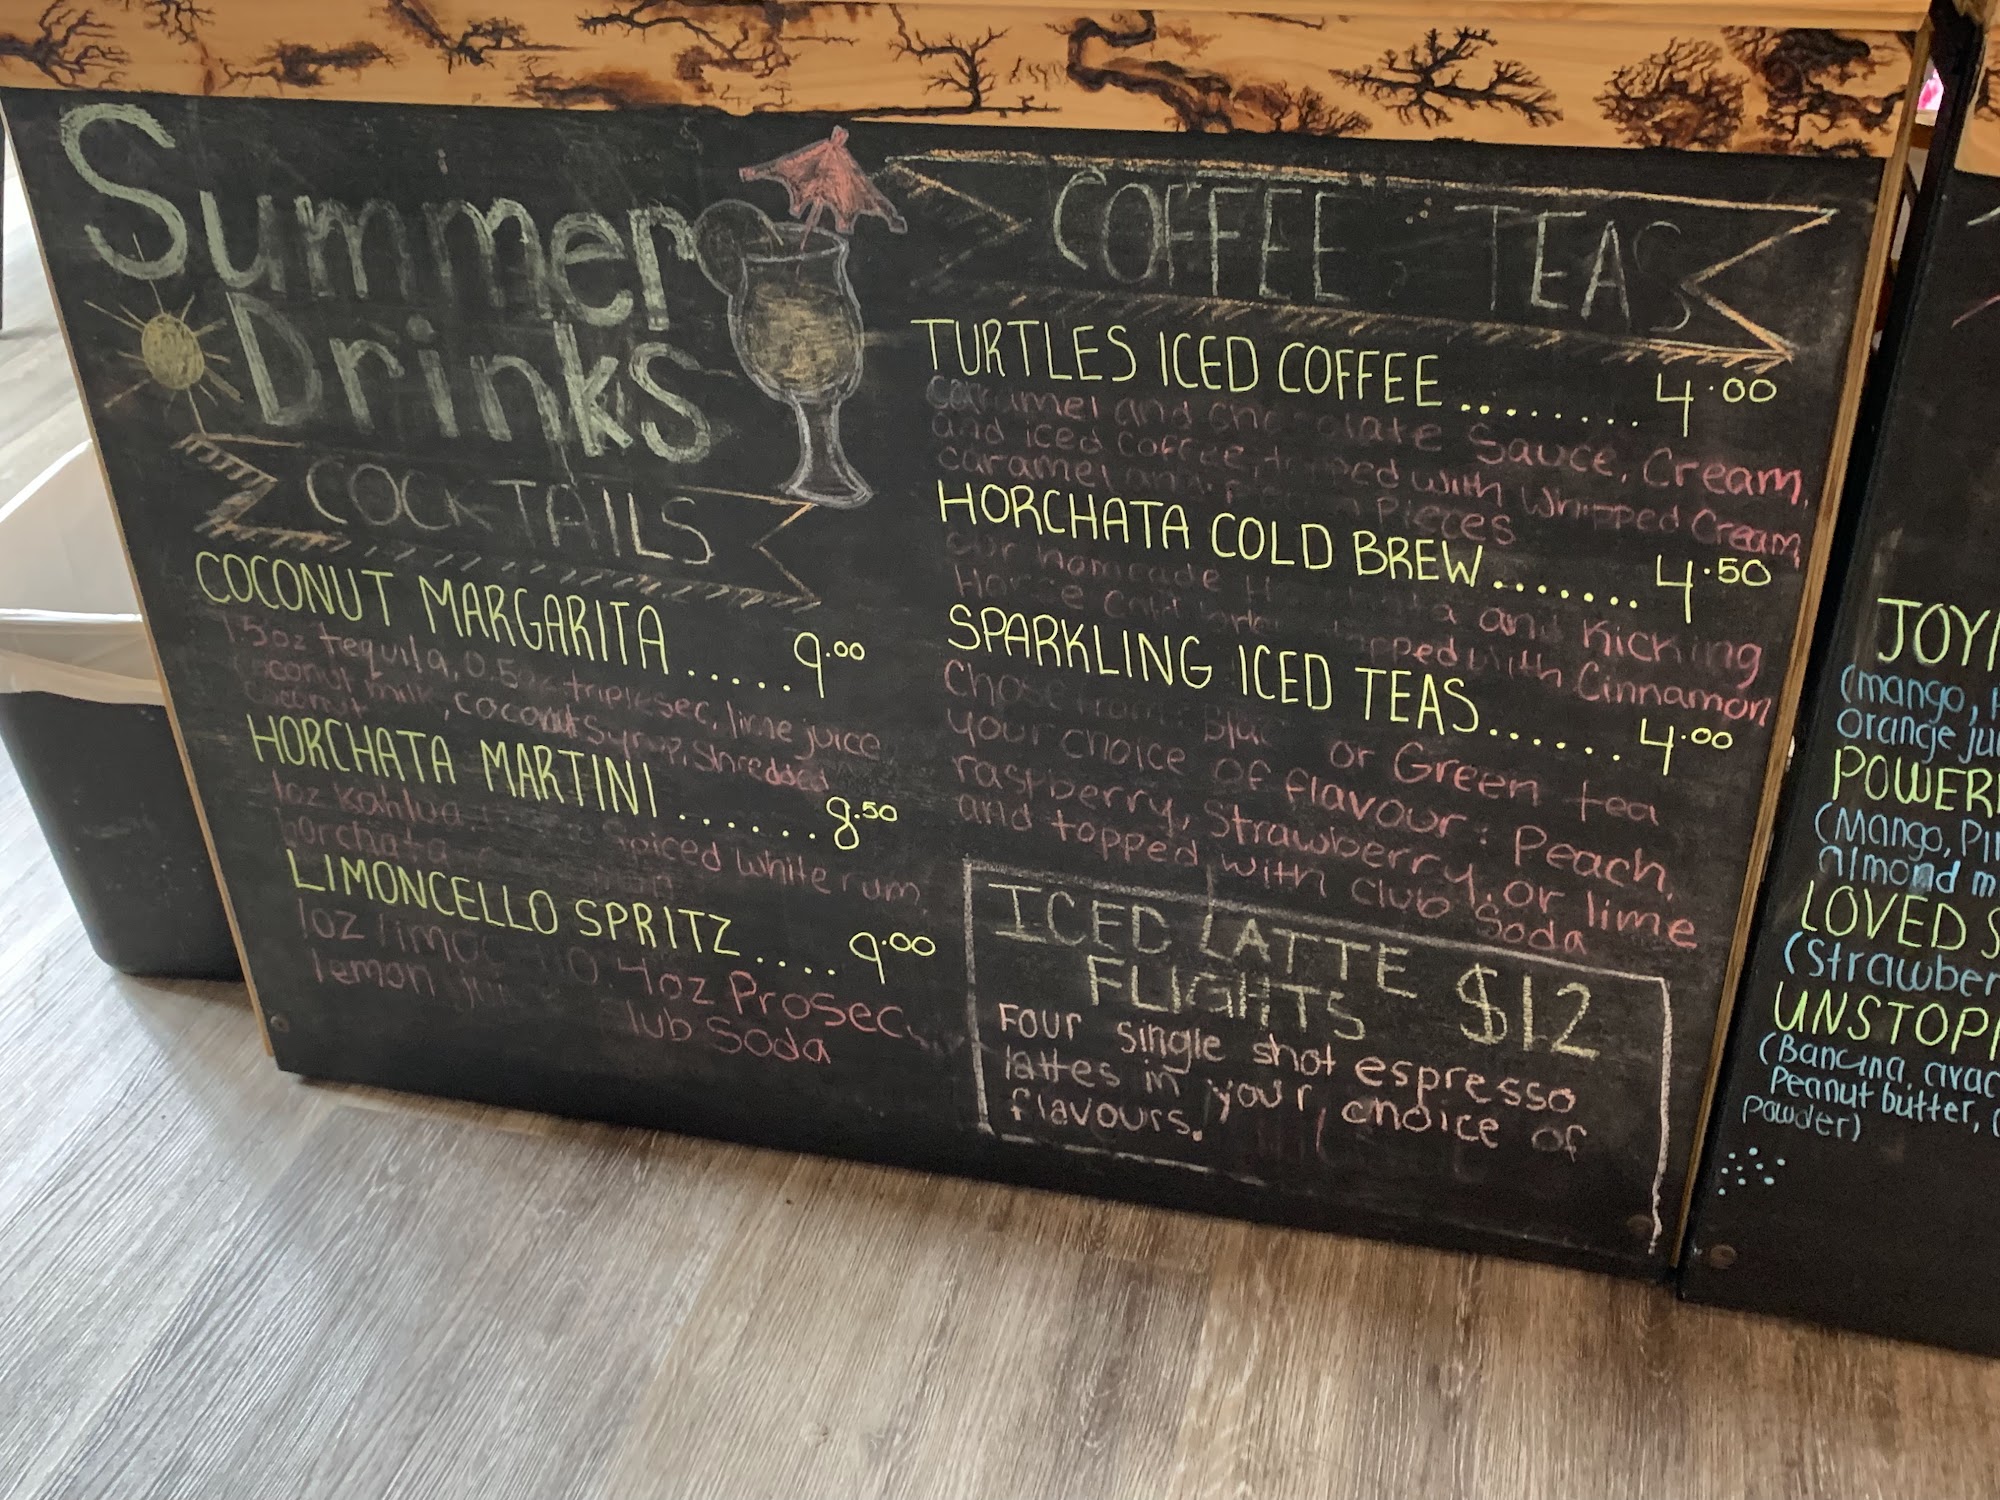 Summer
Drinks
COCKTAILS
COCONUT MARGARITA ..... 9.00
1.5oz tequila, 0.5oz triple sec, lime juice
coconut milk, coconut Syrup, Shredded
coconut
HORCHATA MARTINI ....... 8.50
1oz Kahlua Spiced White rum,
horchata
LIMONCELLO SPRITZ .... 9.00
1oz 4oz Prosecco,
lemon Club Soda
COFFEE : TEAS
TURTLES ICED COFFEE ........ 4.00
caramel and chocolate Sauce, Cream,
and iced coffee, topped with Whipped Cream,
caramel and Pieces
HORCHATA COLD BREW ....... 4.50
our homemade Horchata and Kicking
Horse topped With Cinnamon
SPARKLING ICED TEAS ....... 4.00
Chose from: or Green tea
your choice of flavour: Peach,
raspberry, Strawberry, or lime
and topped with Club Soda
ICED LATTE
FLIGHTS $12
Four single shot espresso
lattes in your choice of
flavours.
(mango,
orange
POWER
(Mango,
almond
LOVED
(Strawber
UNSTOP
(Banana, avac
Peanut butter,
Powder)